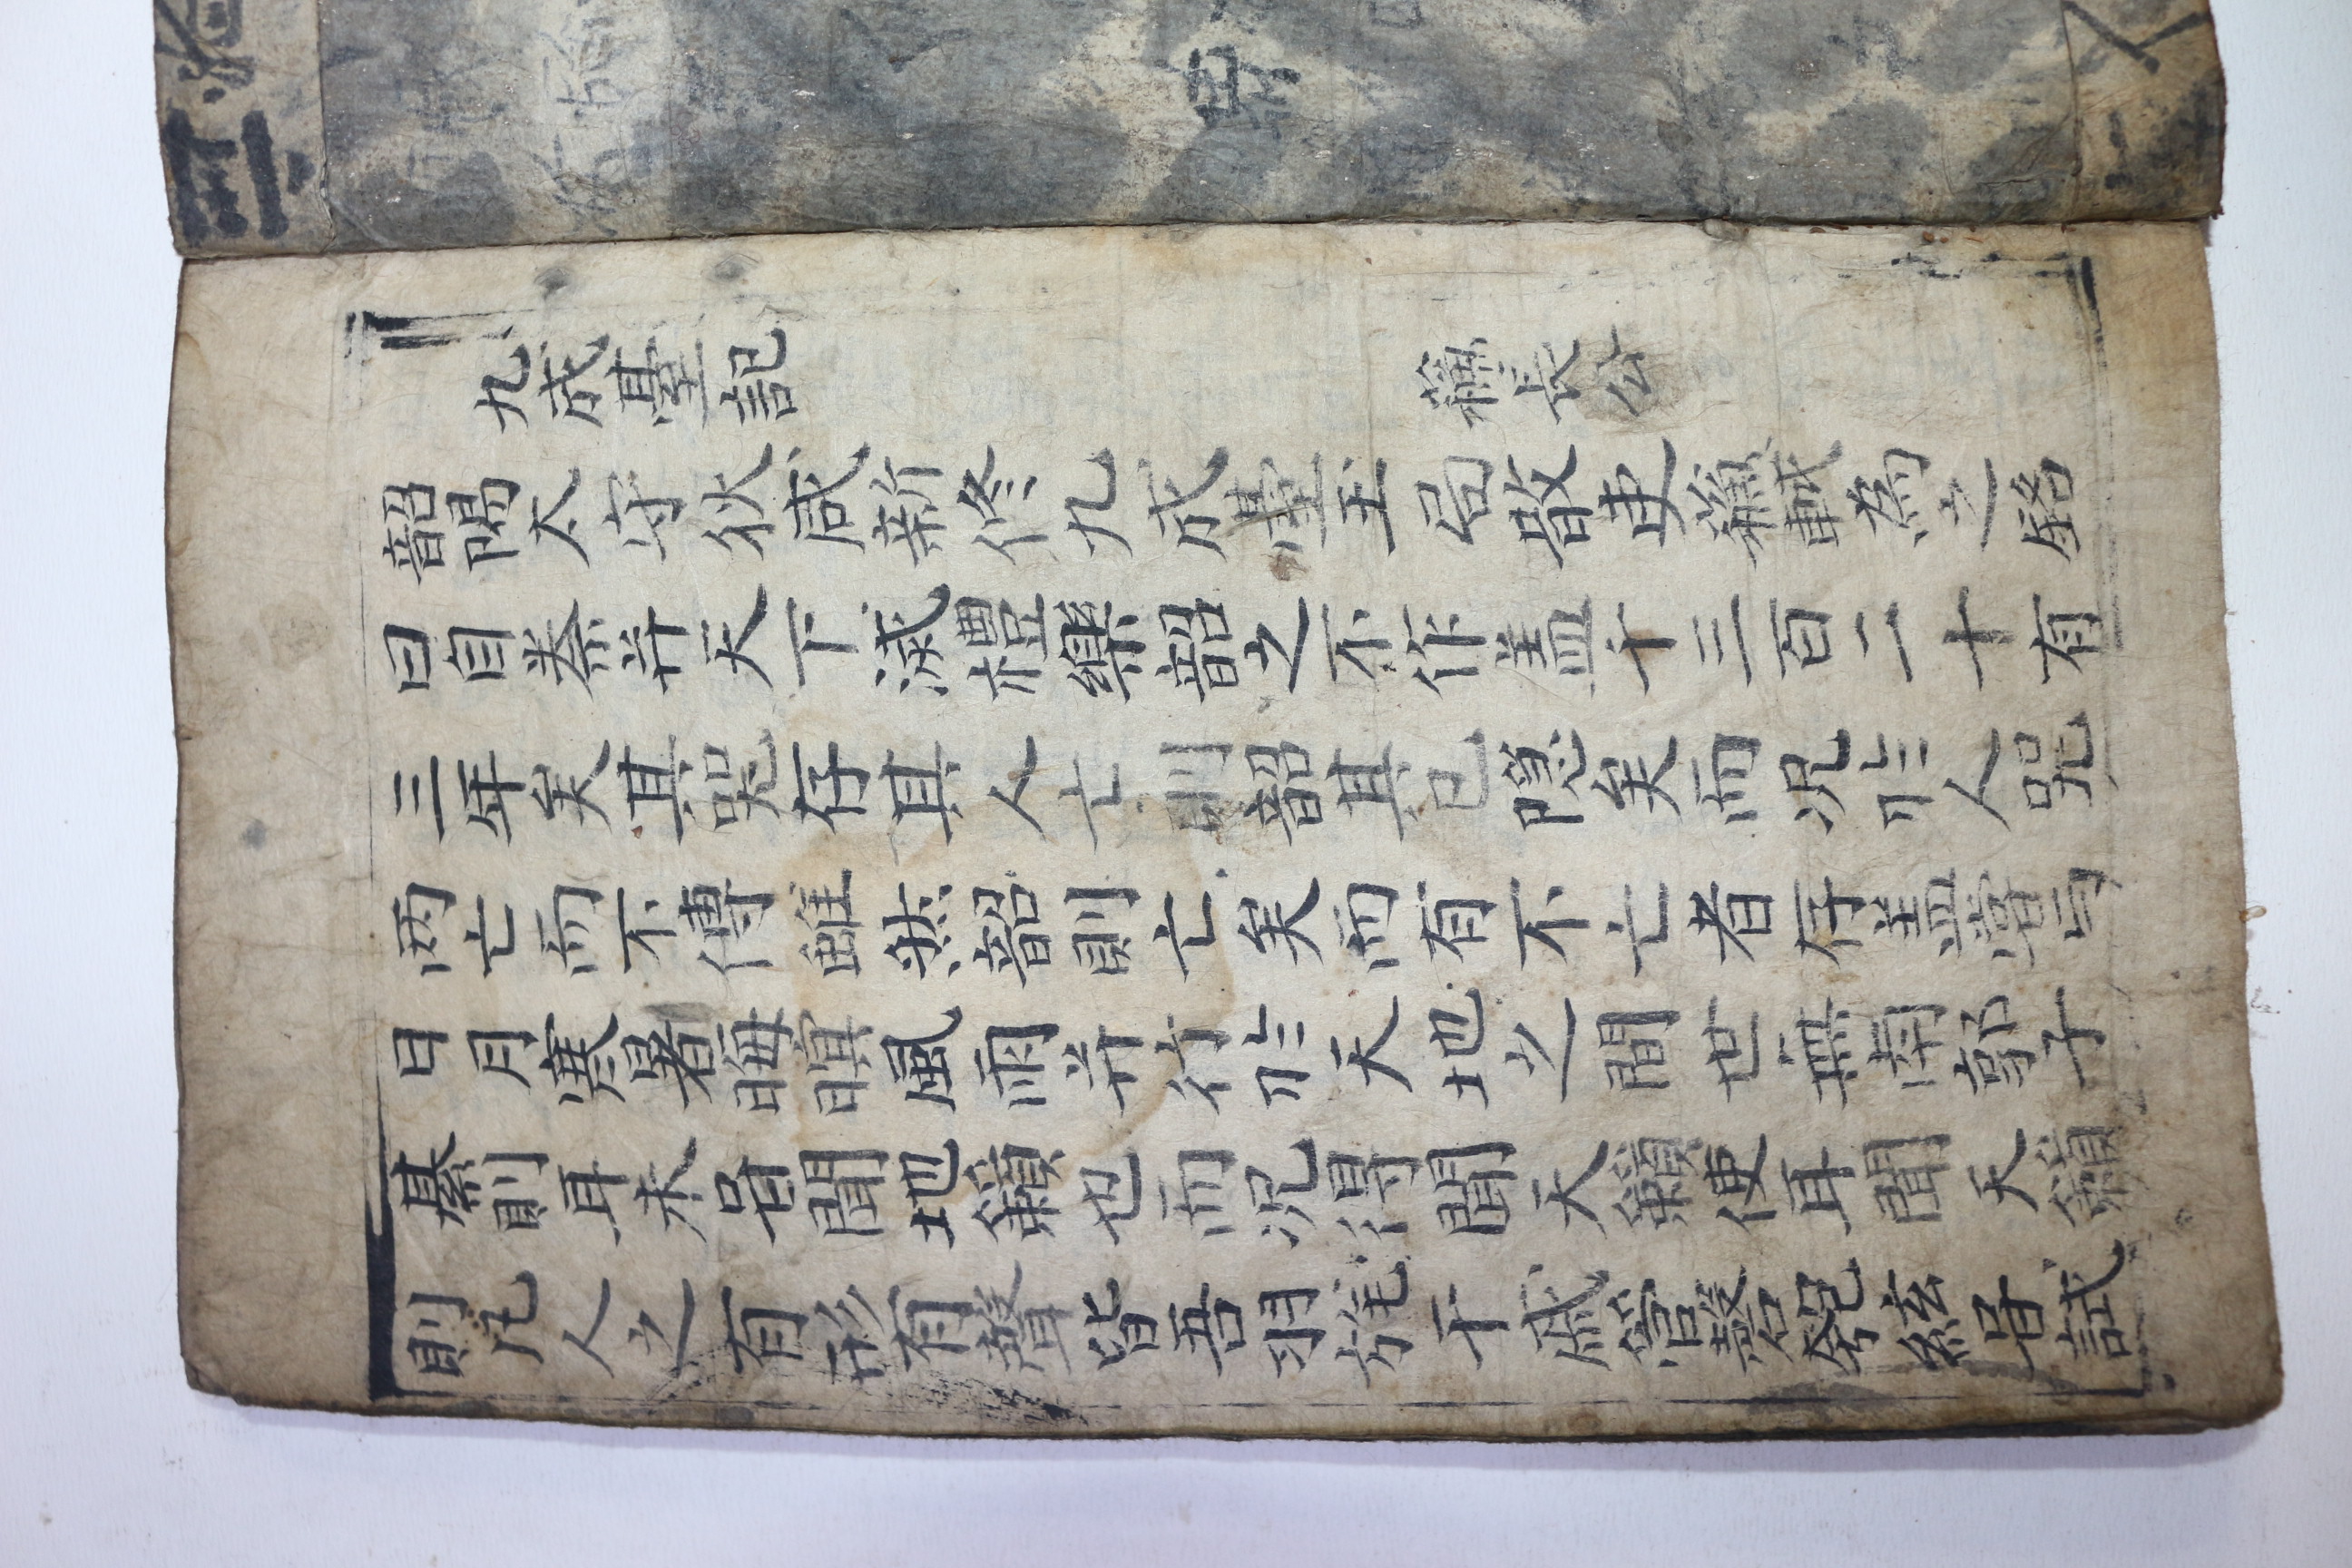 九成臺記 蘇長公
韶陽太守狄咸新修九成臺玉局散吏蘇軾爲之銘
曰自秦并天下滅禮樂韶之不作盖千三百二十有
三年矣其器存其人亡則韶其已隱矣而况於人器
兩亡而不傳雖然韶則亡矣而有不亡者存盖嘗与
日月寒暑晦暝風雨并行於天地之間世無南郭子
綦則耳未甞聞地籟也而况得聞天籟使耳聞天籟
則凡人之有形有聲皆吾羽旄干戚管磬匏絃甞試